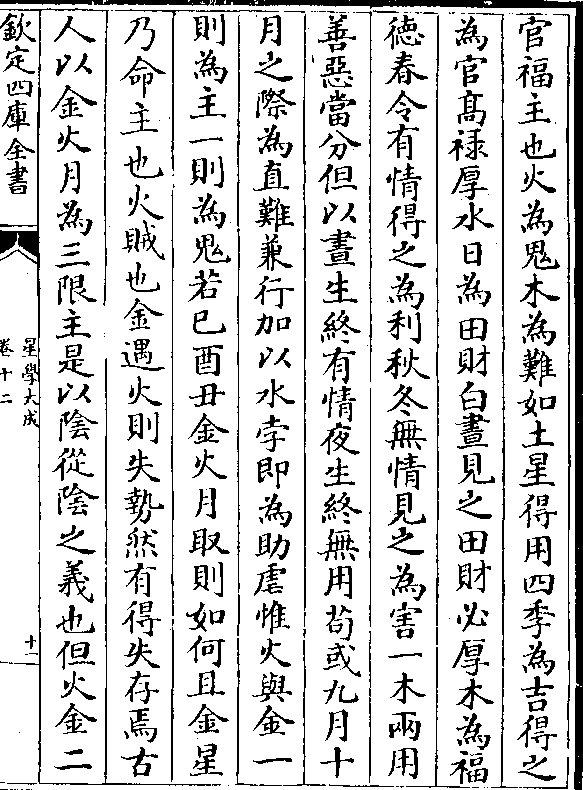 官福主也火為鬼木為難如土星得用四季為吉得之
為官髙禄厚水日為田財白晝見之田財必厚木為福
徳春令有情得之為利秋冬無情見之為害一木兩用
善惡當分但以晝生終有情夜生終無用苟或九月十
月之際為直難兼行加以水孛即為助虐惟火與金一
則為主一則為鬼若巳酉丑金火月取則如何且金星
乃命主也火賊也金遇火則失勢然有得失存焉古
人以金火月為三限主是以陰從陰之義也但火金二
欽定四庫全書
星學大成
卷十二
十一